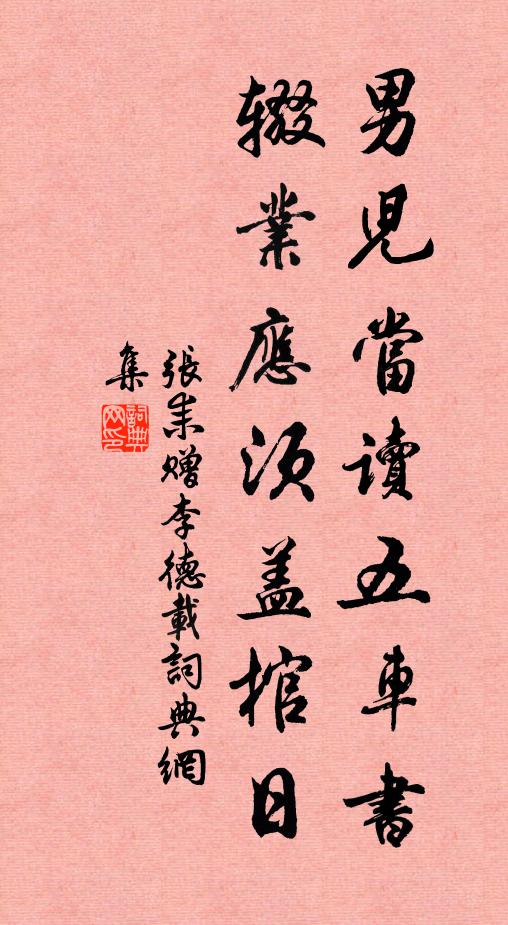 男兒當讀五車書
辍業應須盖棺日
張耒贈李德載詞典網
集
詞典
网印